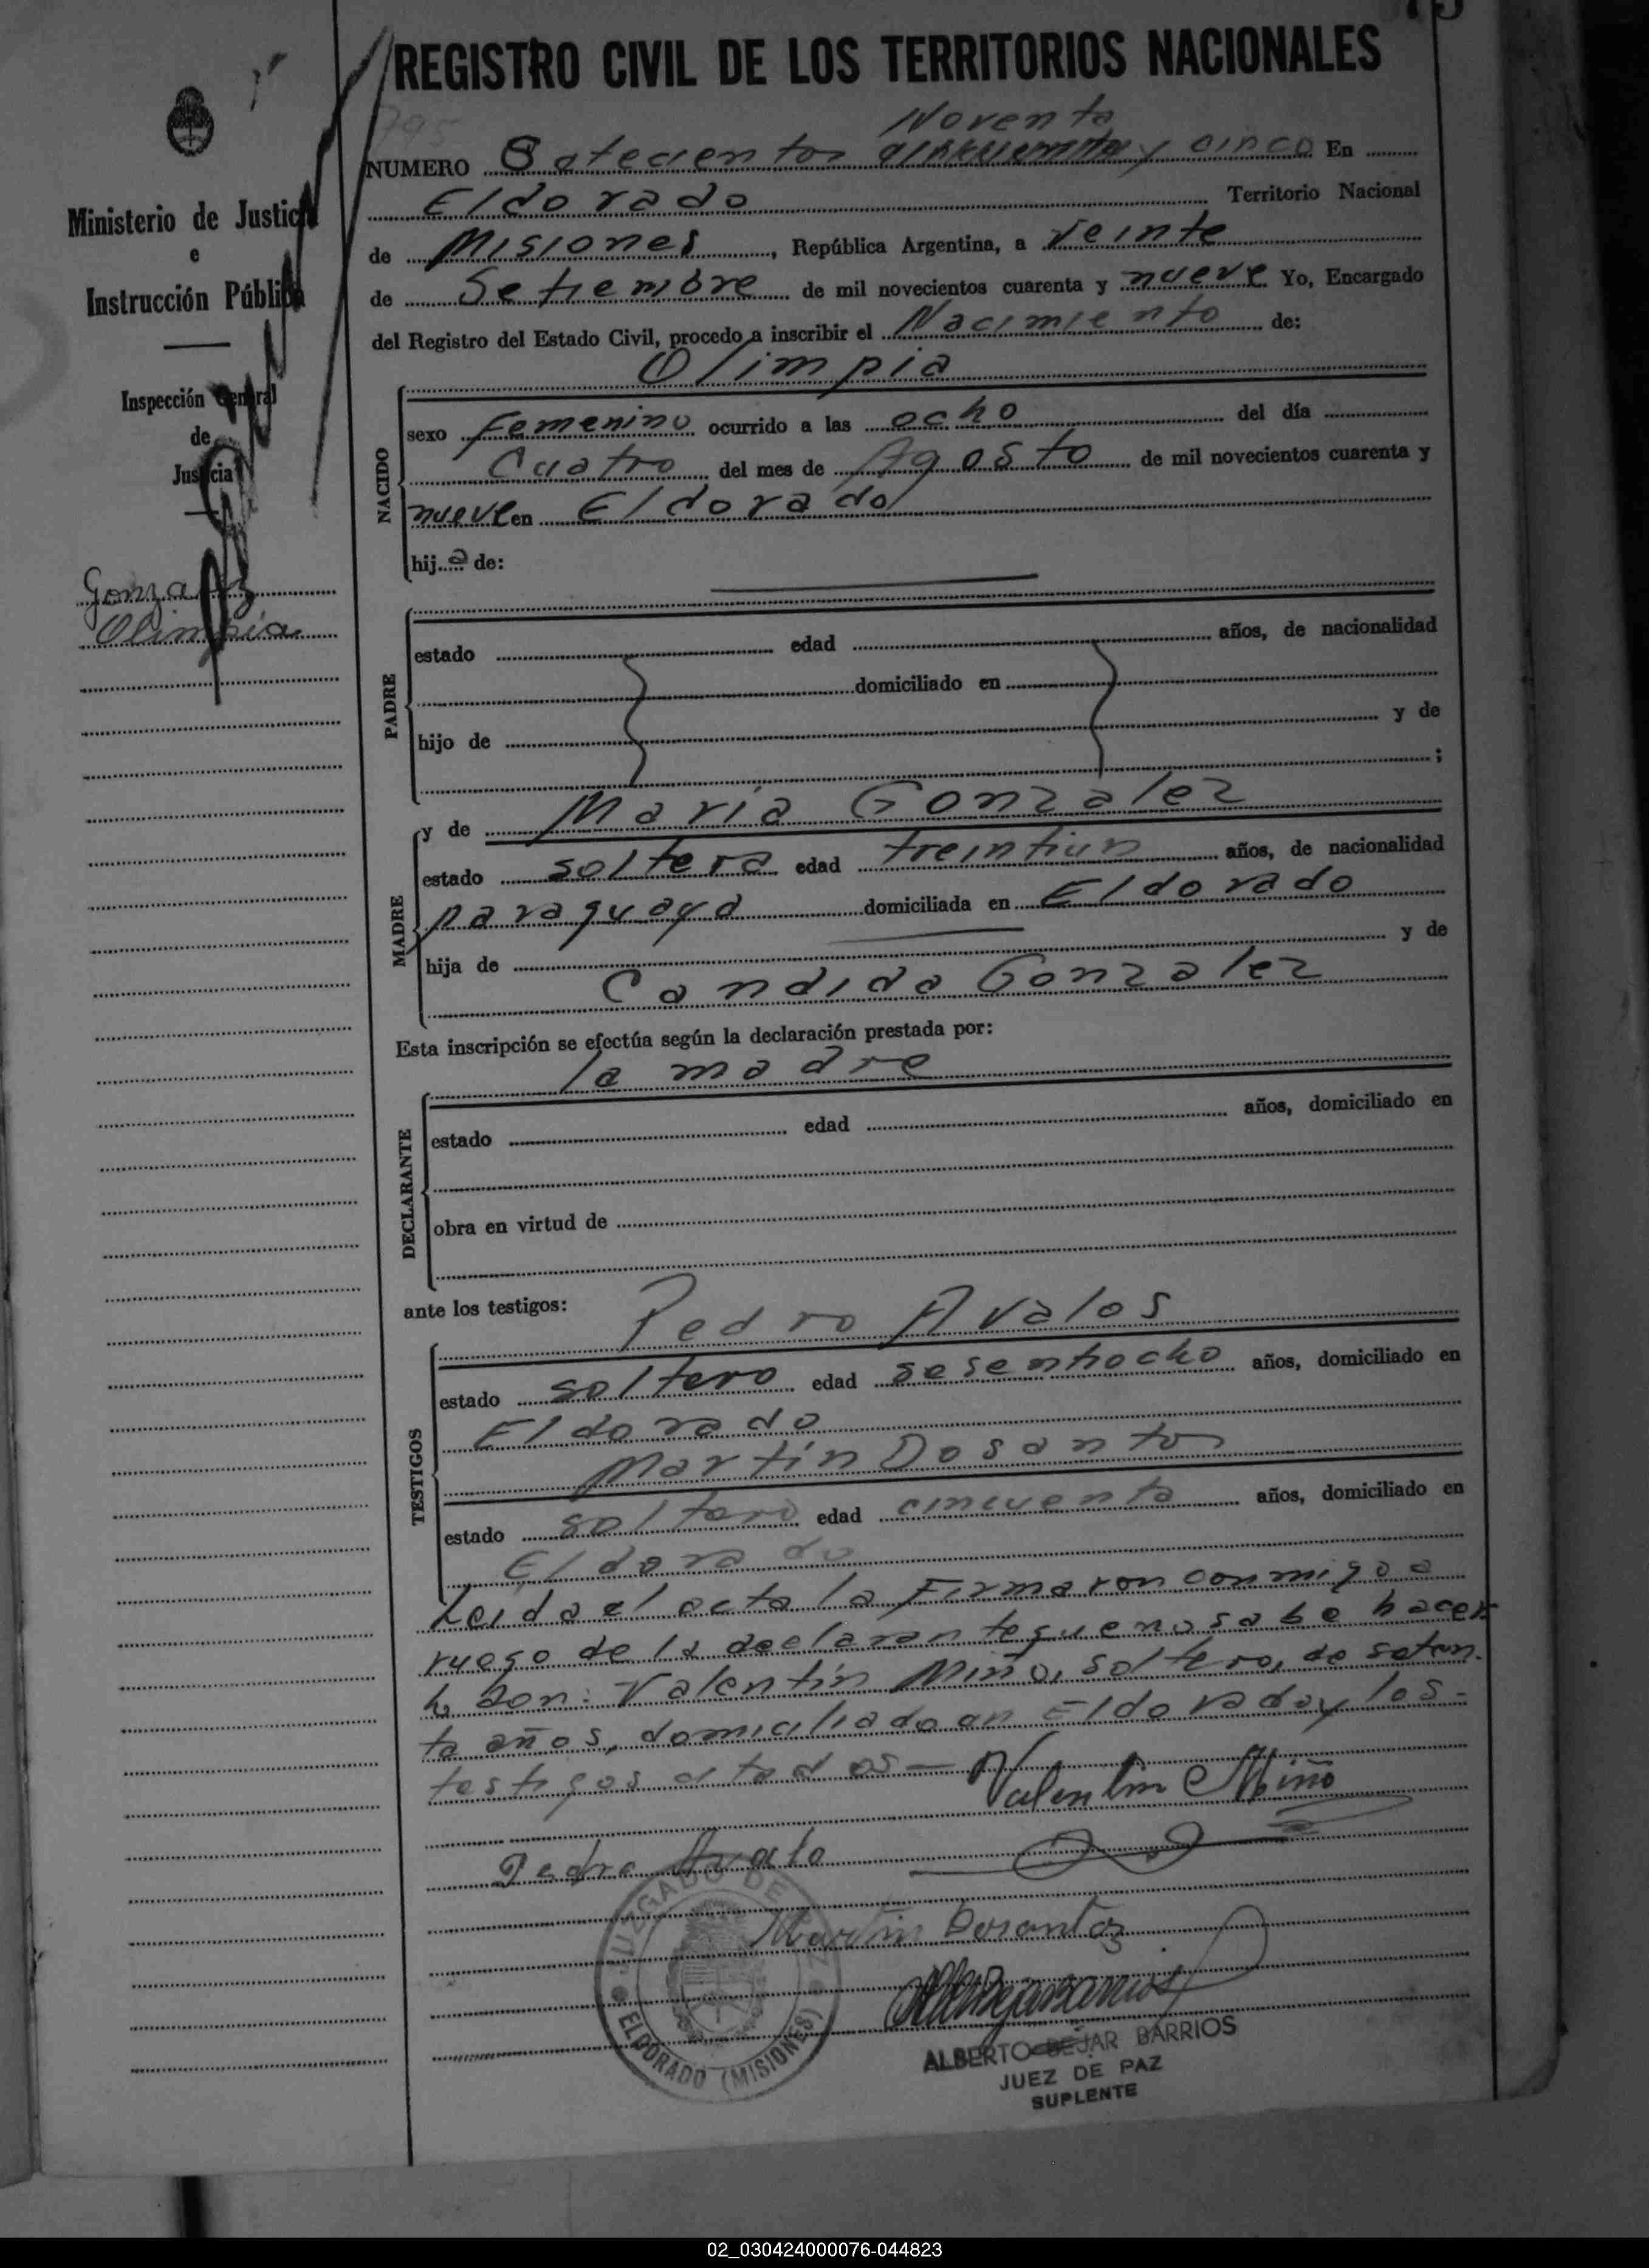 REGISTRO CIVIL DE LOS TERRITORIOS NACIONALES
795
Noventa
NUMERO Setecientos y cinco En
Eldorado Territorio Nacional
de Misiones, República Argentina, a veinte
de Setiembre de mil novecientos cuarenta y nueve Yo, Encargado
del Registro del Estado Civil, procedo a inscribir el Nacimiento de:
Ministerio de Justicia
e
Instrucción Pública
Inspección General
de
Justicia
Gonzalez
Olimpia
NACIDO
Olimpia
sexo Femenino ocurrido a las ocho del día
Cuatro del mes de Agosto de mil novecientos cuarenta y
nueve en Eldorado
hija de:
PADRE
estado edad años, de nacionalidad
domiciliado en
hijo de y de
;
MADRE
y de Maria Gonzalez
estado soltera edad treintiun años, de nacionalidad
paraguaya domiciliada en Eldorado
hija de y de
Candida Gonzalez
Esta inscripción se efectúa según la declaración prestada por:
la madre
DECLARANTE
estado edad años, domiciliado en
obra en virtud de
ante los testigos:
Pedro Avalos
TESTIGOS
estado soltero edad sesentiocho años, domiciliado en
Eldorado
Martín Dosantos
estado soltero edad cincuenta años, domiciliado en
Eldorado
Leida el acta la Firmaron conmigo a
ruego de la declarante que no sabe hacer
lo don: Valentín Miño, soltero, de seten-
ta años, domiciliado en Eldorado y los-
testigos citados—
Valentin Miño
Pedro Avalo
Martin Dosantos
JUZGADO DE PAZ
ELDORADO (MISIONES)
ALBERTO BEJAR BARRIOS
JUEZ DE PAZ
SUPLENTE
02_030424000076-044823